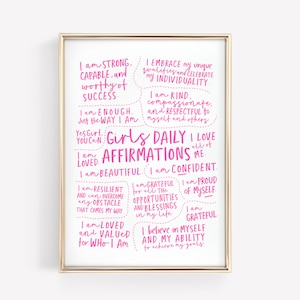 I am STRONG,
CAPABLE, and
worthy of
SUCCESS
I EMBRACE my unique
qualities and CELEBRATE
my INDIVIDUALITY
I am ENOUGH,
Just the WAY I AM
I am KIND,
compassionate,
and RESPECTFUL to
myself and others
Yes Girl,
YOU CAN.
Girls DAILY
AFFIRMATIONS
I am
LOVED
I LOVE
all of
ME
I am BEAUTIFUL.
I am CONFIDENT.
I am RESILIENT
and can OVERCOME
any OBSTACLE
THAT COMES MY WAY
I am GRATEFUL
for all the
OPPORTUNITIES
AND BLESSINGS
in my life
I am PROUD
OF MYSELF
I am
GRATEFUL
I am LOVED
and VALUED
for WHO I AM
I believe in MYSELF
AND MY ABILITY
to achieve my goals